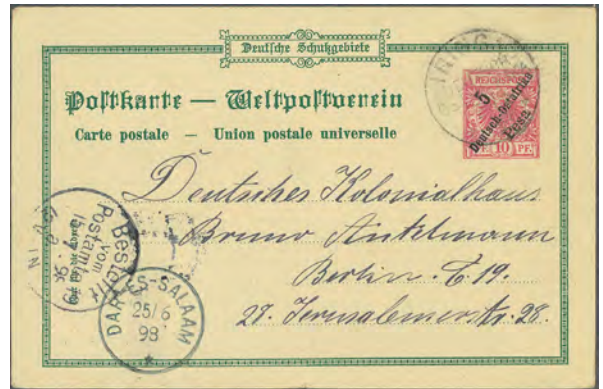 Deutsche Schutzgebiete
Postkarte — Weltpostverein
Carte postale — Union postale universelle
REICHSPOST
5
Deutsch-Ostafrika
Pesa
PF. 10 PF.
Deutsches Kolonialhaus
Bruno Antelmann
Berlin. C. 19.
28. Jerusalemerstr. 28.
Bestellt
vom
Postamte
DAR-ES-SALAAM
25/6
98